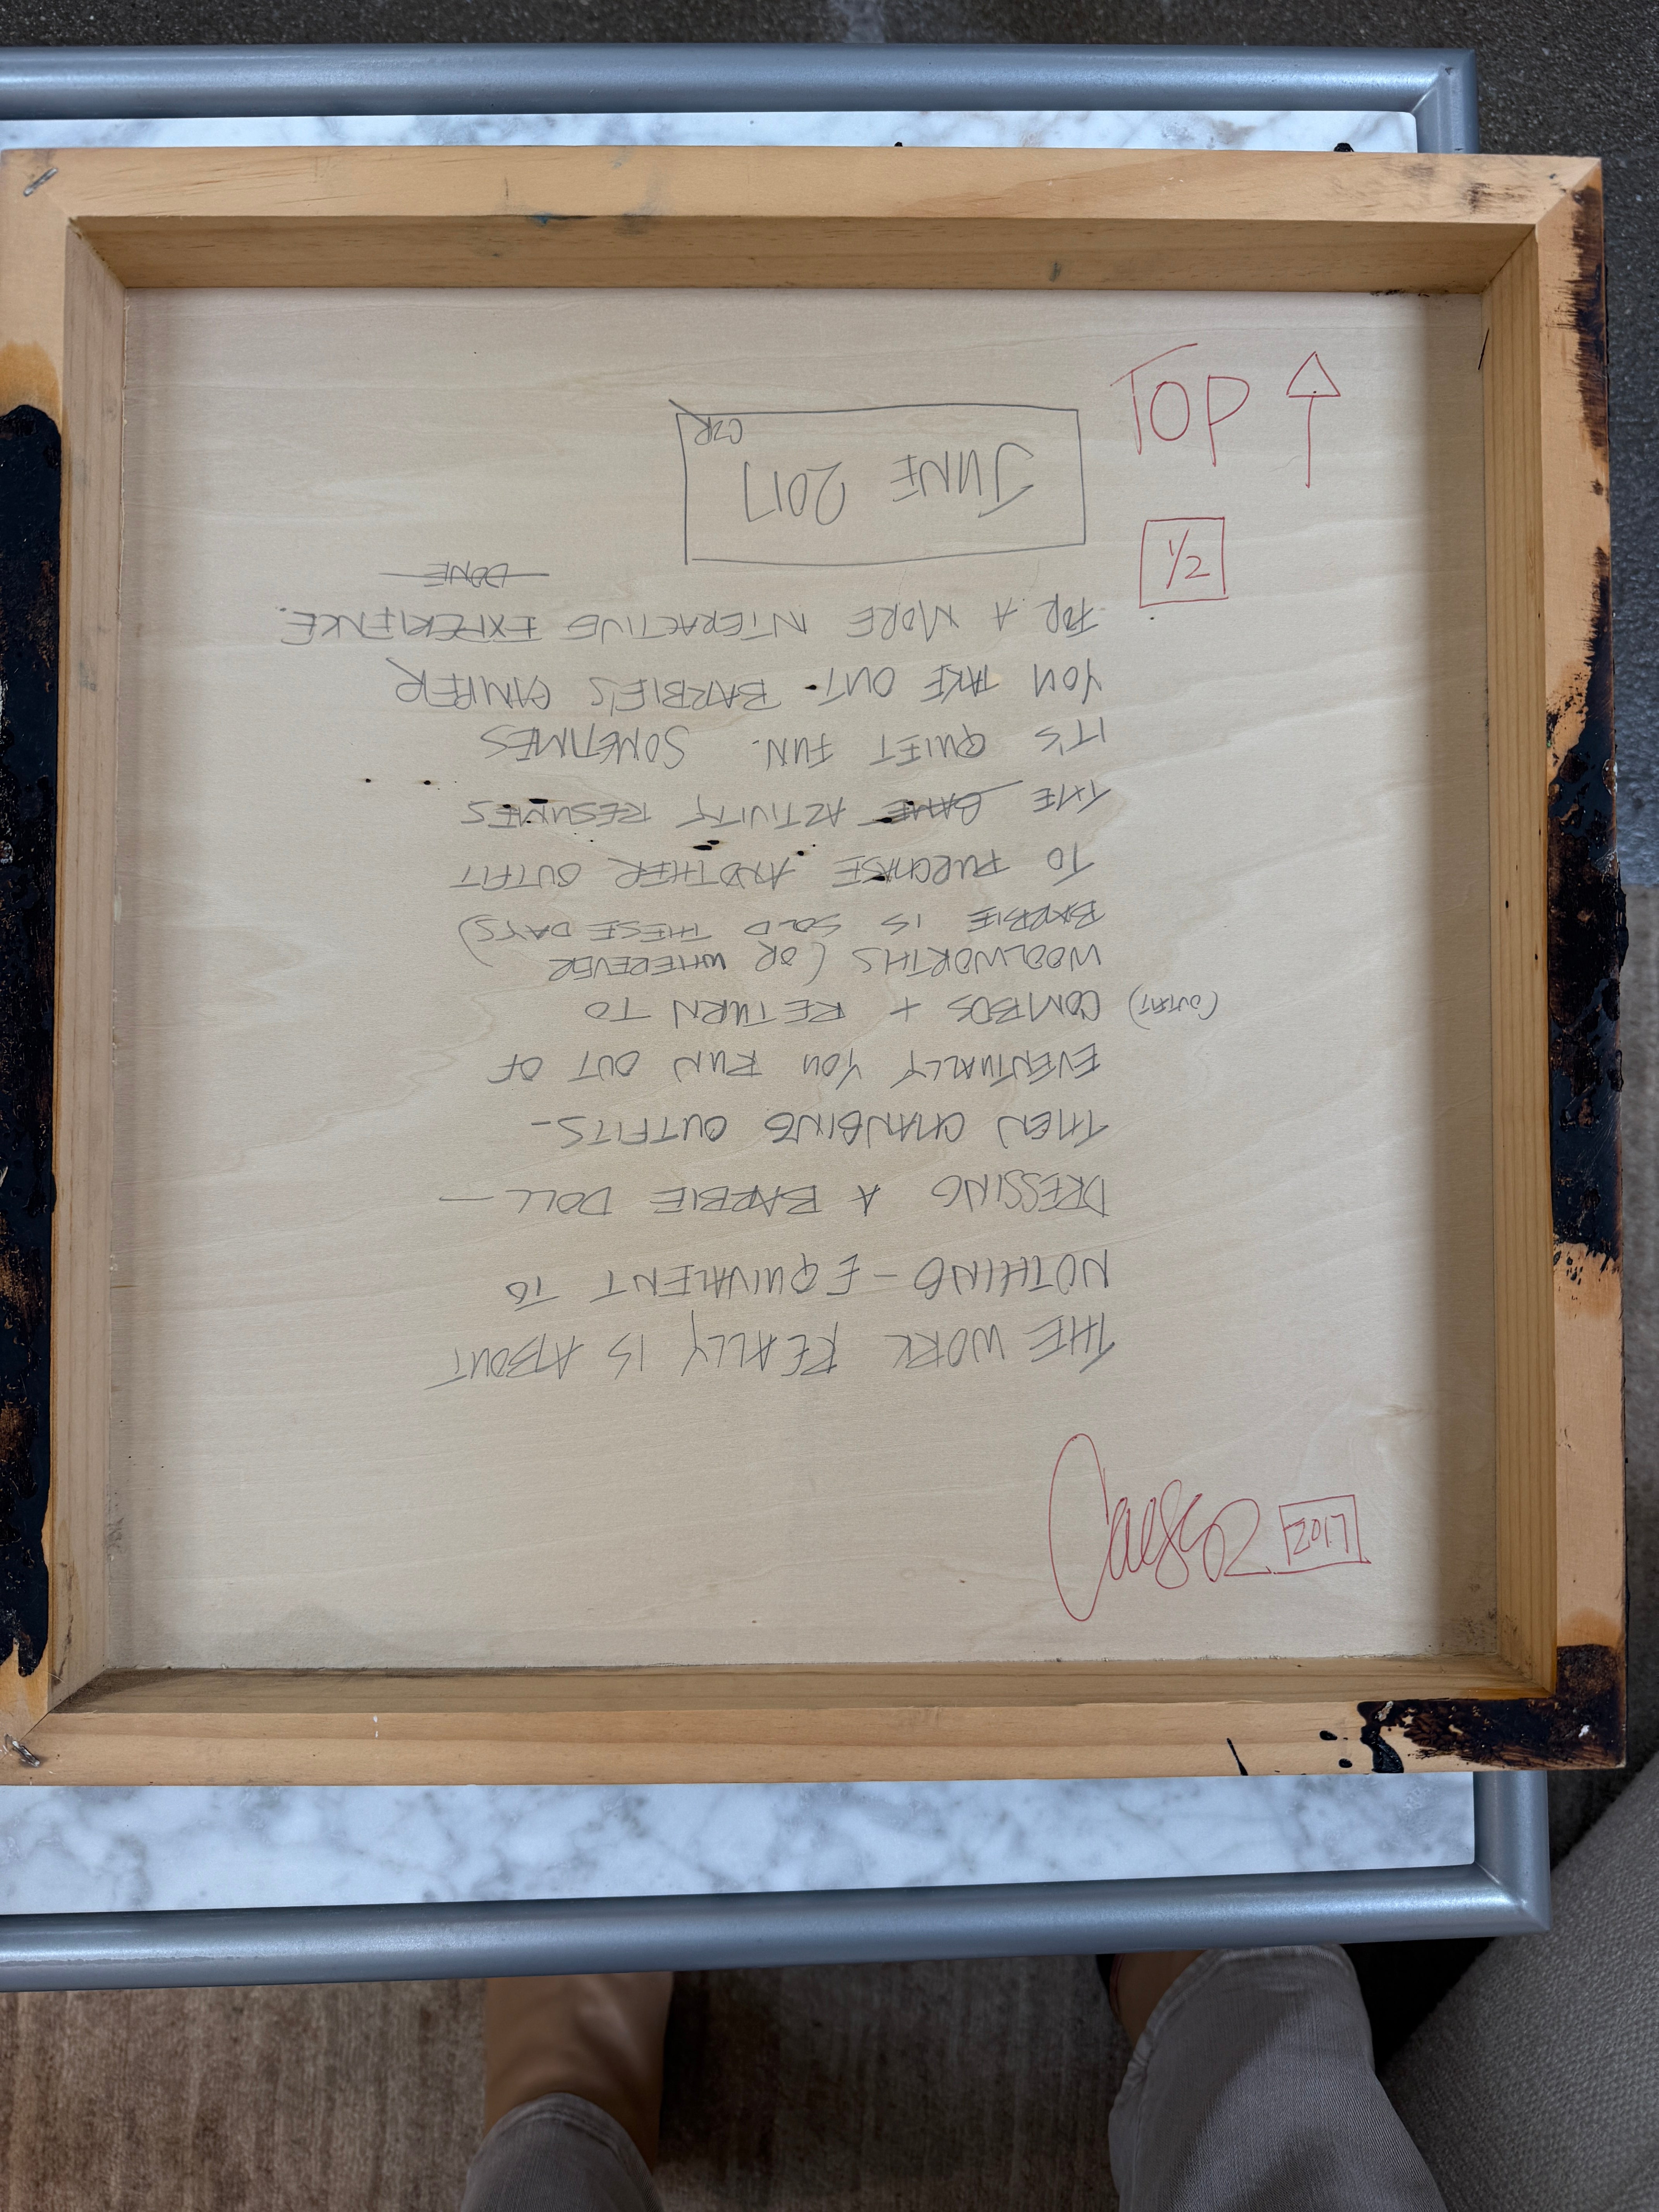 TOP
1/2
THE WORK REALLY IS ABOUT
NOTHING - EQUIVALENT TO
DRESSING A BARBIE DOLL —
THEN CHANGING OUTFITS -
EVENTUALLY YOU RUN OUT OF
(OUTFIT) COMBOS + RETURN TO
WOOLWORTHS (OR WHEREVER
BARBIE IS SOLD THESE DAYS)
TO PURCHASE ANOTHER OUTFIT
THE GAME ACTIVITY RESUMES
IT'S QUIET FUN. SOMETIMES
YOU TAKE OUT BARBIE'S CAMPER
FOR A MORE INTERACTIVE EXPERIENCE.
DONE
JUNE 2017
CZR
2017